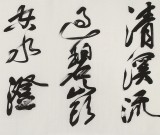 清溪流
過碧山頭
空水澄